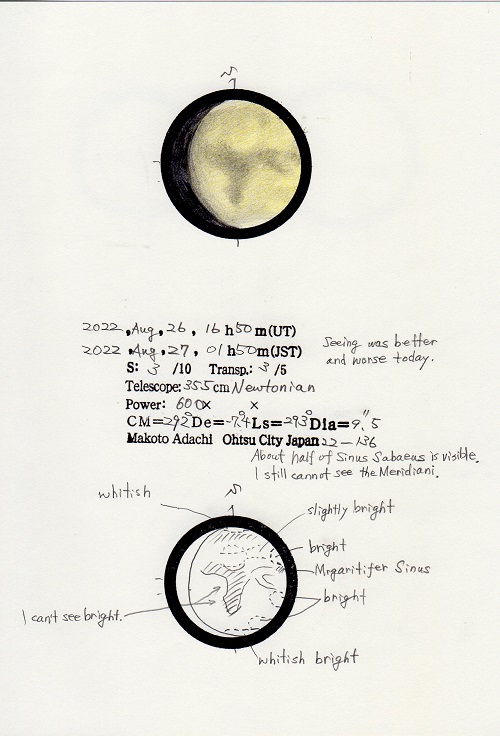 N
2022, Aug, 26, 16 h 50 m (UT)
2022, Aug, 27, 01 h 50 m (JST)
Seeing was better
and worse today.
S: 3 /10 Transp.: 3 /5
Telescope: 355 cm Newtonian
Power: 600× ×
CM=292° De=-7.4° Ls=293° Dia=9".5
Makoto Adachi Ohtsu City Japan 22-136
About half of Sinus Sabaeus is visible.
I still cannot see the Meridiani.
N
whitish
slightly bright
bright
Mrgaritifer Sinus
bright
I can't see bright.
whitish bright